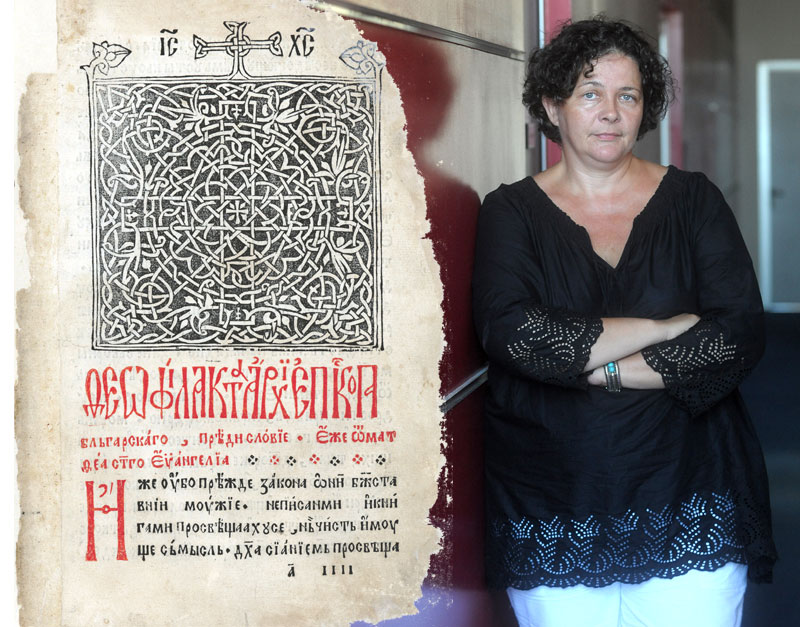 І҃С Х҃С
Ѳеѡфѵлакта архїепⷭ҇кѻпа
бльгарскаго , прѣдисловїе · Е҆же ѿ мат
ѳеа ст҃го Е҆ѵ҆ангелїа
Иже оу҆бо прѣжде закона ѡ҆нїи бж҃ста
внїи моужїе · не писанми и҆ кни
гами просвѣщаахꙋсе , нь чисть и҆моу
ще съмысль · дх҃а сїанїемь просвѣща
а҃ ІІІІ